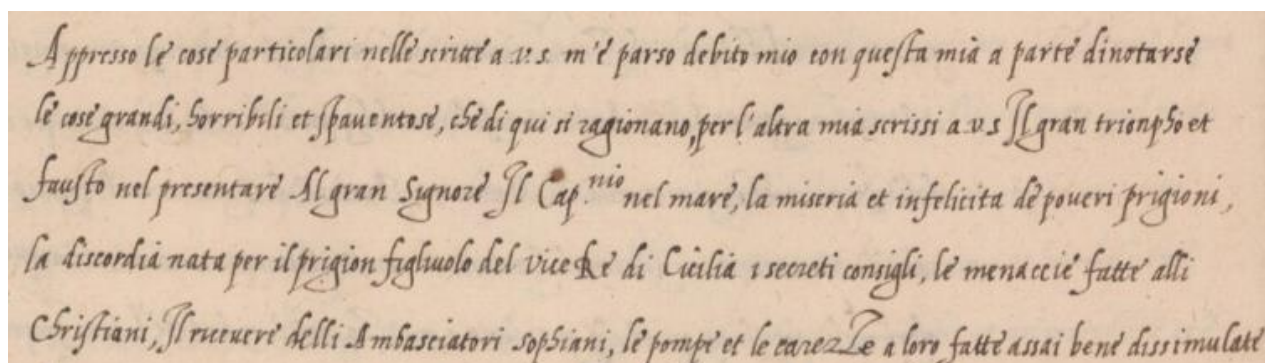 Appresso le cose particolari nelle scritte a v.s. m'è parso debito mio con questa mia a parte dinotarse
le cose grandi, horribili et spaventose, che di qui si ragionano, per l'altra mia scrissi a v.s Il gran trionpho et
fausto nel presentare Al gran Signore Il Cap.nio nel mare, la miseria et infelicita de poveri prigioni,
la discordia nata per il prigion figliuolo del vice Re di Cicilia i secreti consigli, le menaccie fatte alli
Christiani, Il ricevere delli Ambasciatori sophiani, le pompe et le carezze a loro fatte assai bene dissimulate